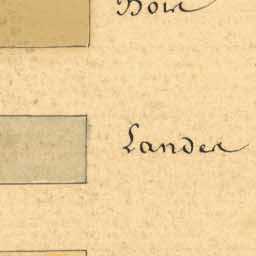 Bois
Landes